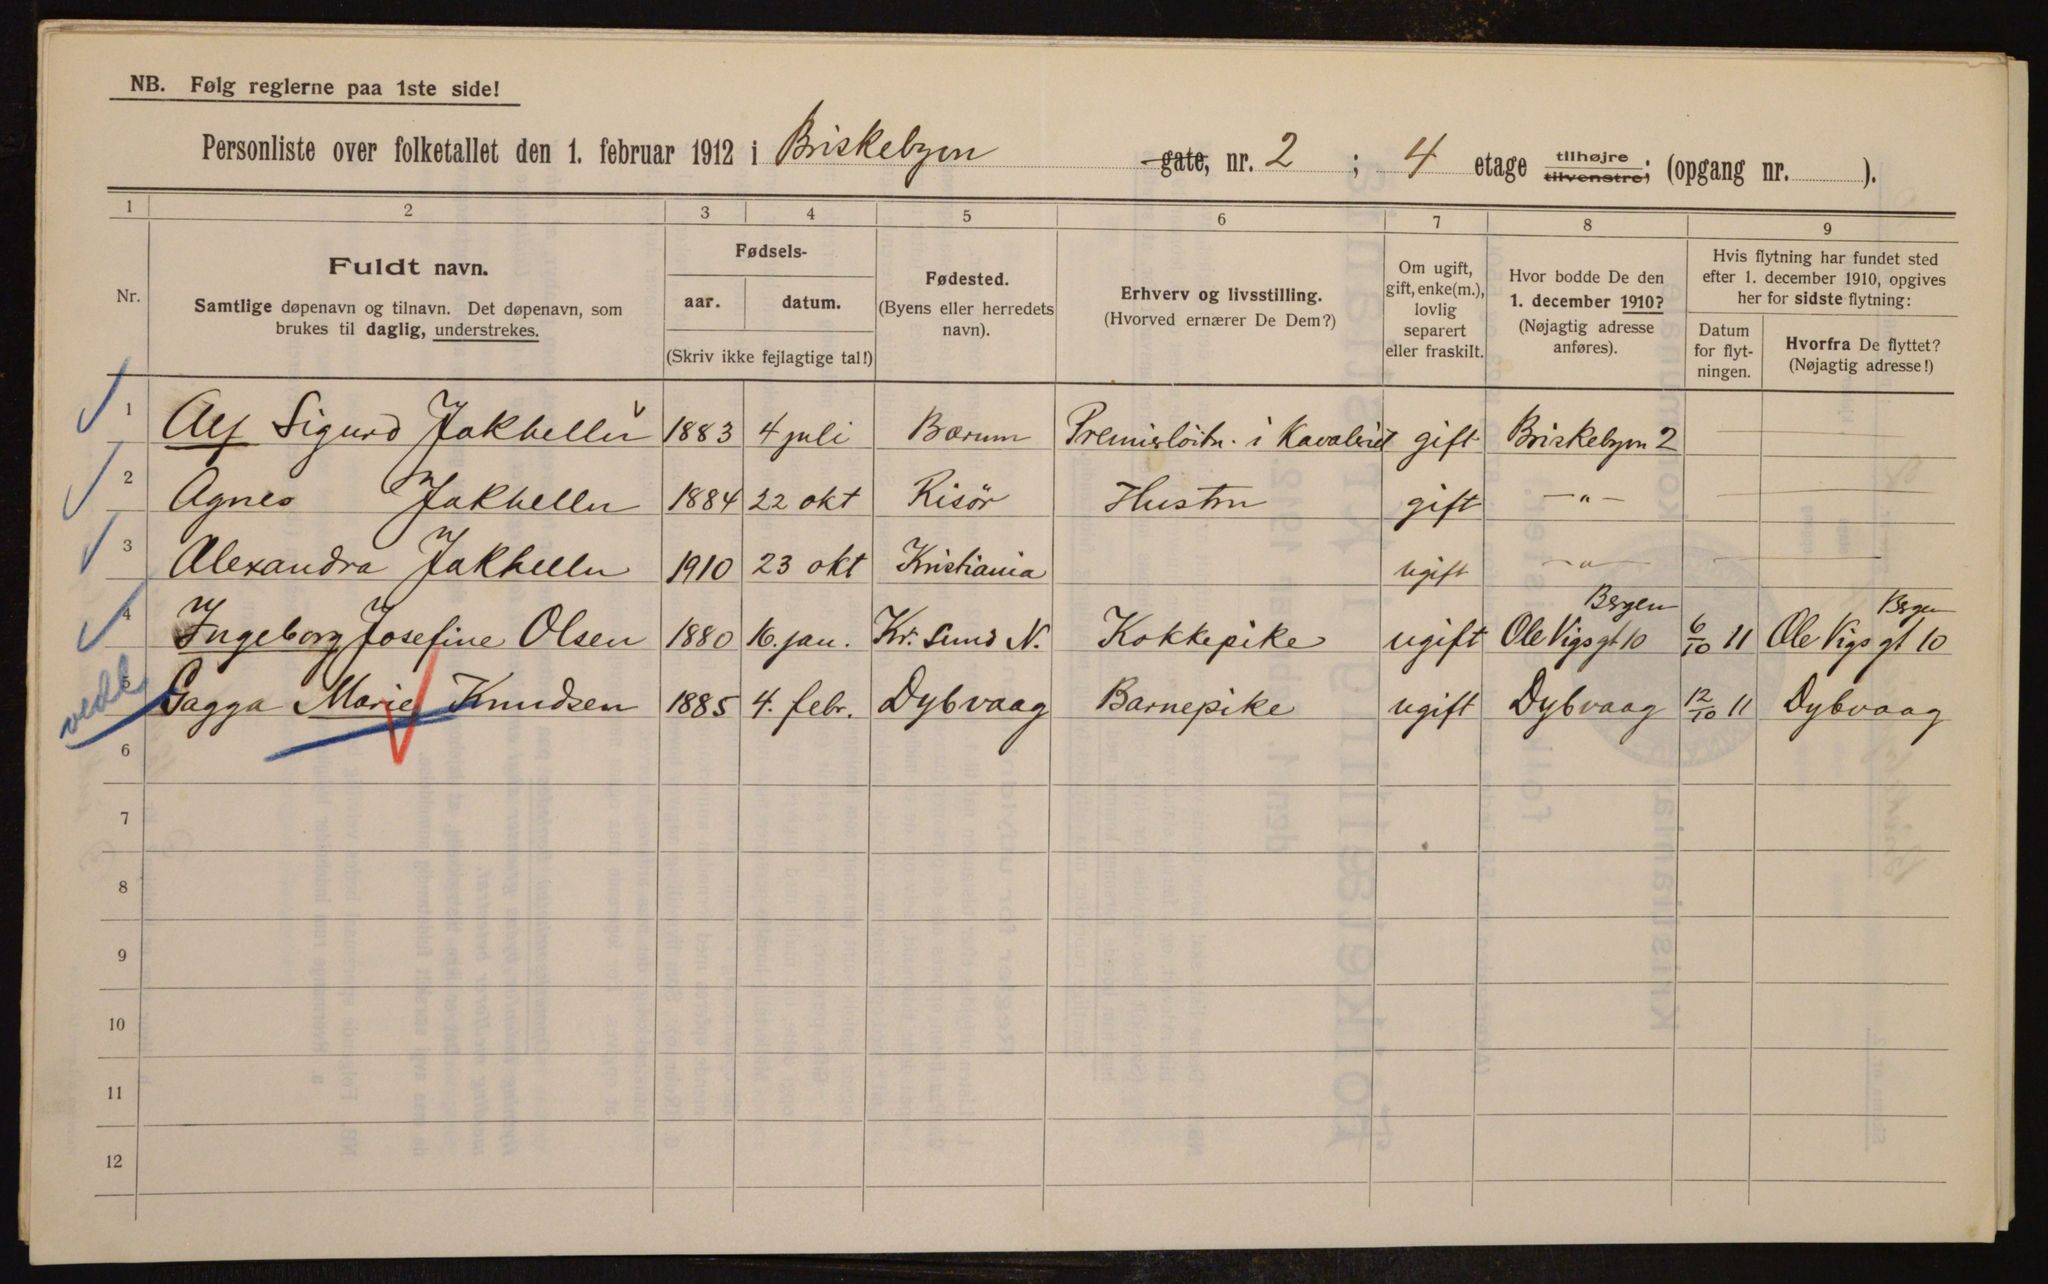 NB. Følg reglerne paa 1ste side!
Personliste over folketallet den 1. februar 1912 i Briskebyen gate, nr. 2 ; 4 etage tilhøjre tilvenstre; (opgang nr. ).
1 2 3 4 5 6 7 8 9
Nr.
Fuldt navn.
Samtlige døpenavn og tilnavn. Det døpenavn, som
brukes til daglig, understrekes.
Fødsels-
aar. datum.
(Skriv ikke fejlagtige tal!)
Fødested.
(Byens eller herredets
navn).
Erhverv og livsstilling.
(Hvorved ernærer De Dem?)
Om ugift,
gift, enke(m.),
lovlig
separert
eller fraskilt.
Hvor bodde De den
1. december 1910?
(Nøjagtig adresse
anføres).
Hvis flytning har fundet sted
efter 1. december 1910, opgives
her for sidste flytning:
Datum
for flyt-
ningen.
Hvorfra De flyttet?
(Nøjagtig adresse!)
1 Alf Sigurd Jakhelln 1883 4 juli Bærum Premierløitn. i Kavaleriet gift Briskebyen 2
2 Agnes Jakhelln 1884 22 okt Risör Hustru gift — " —
3 Alexandra Jakhelln 1910 23 okt Kristiania ugift — " —
4 Ingeborg Josefine Olsen 1880 16. jan. Kr. Sund N. Kokkepike ugift Ole Vigs gt 10 Bergen 6/10 11 Ole Vigs gt 10 Bergen
5 Gagga Marie Knudsen 1885 4. febr. Dybvaag Barnepike ugift Dybvaag 12/10 11 Dybvaag
6
7
8
9
10
11
12